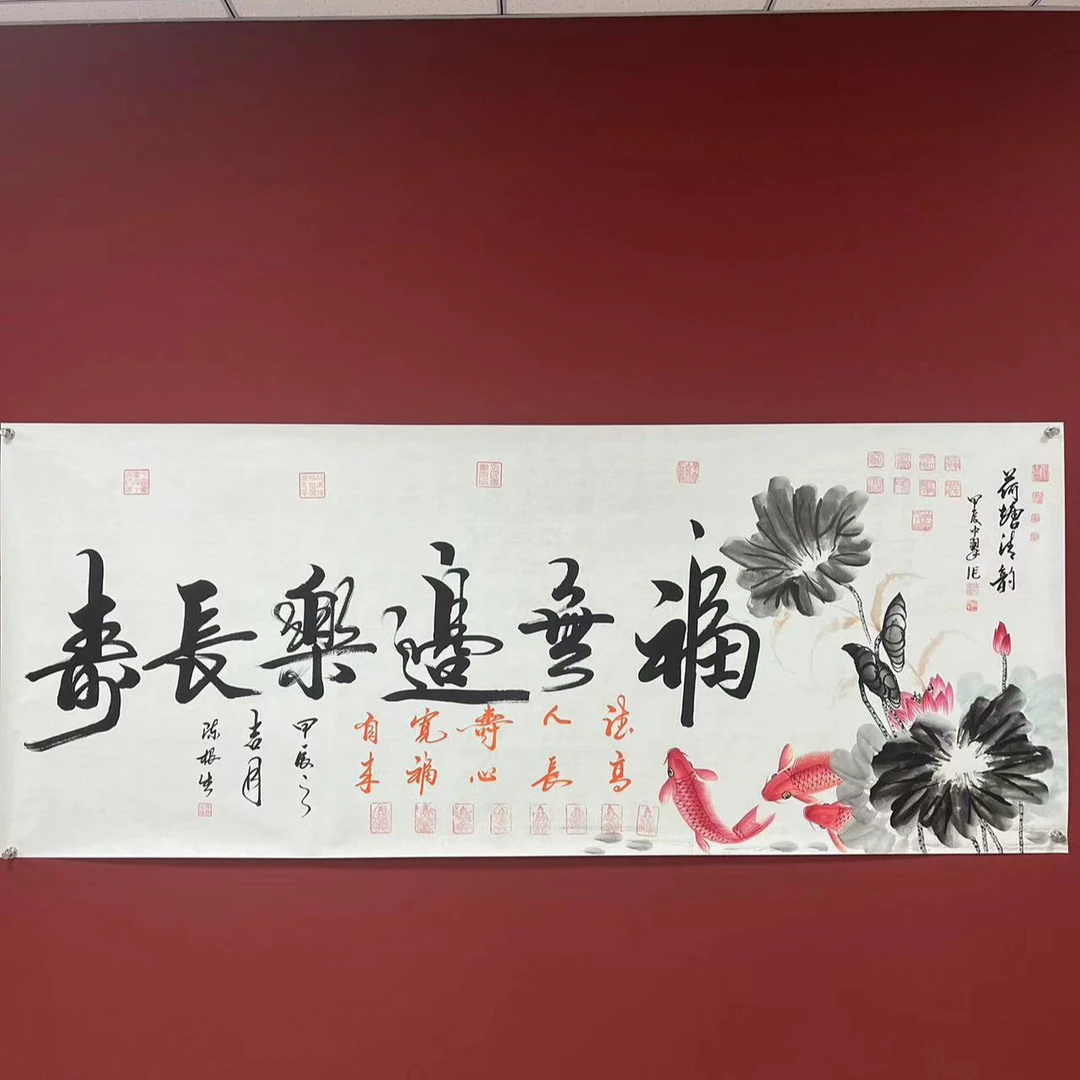 荷塘清韵
甲辰
福無邊樂長壽
德高
人長
壽心
寬福
有来
甲辰之
吉月
陈根生